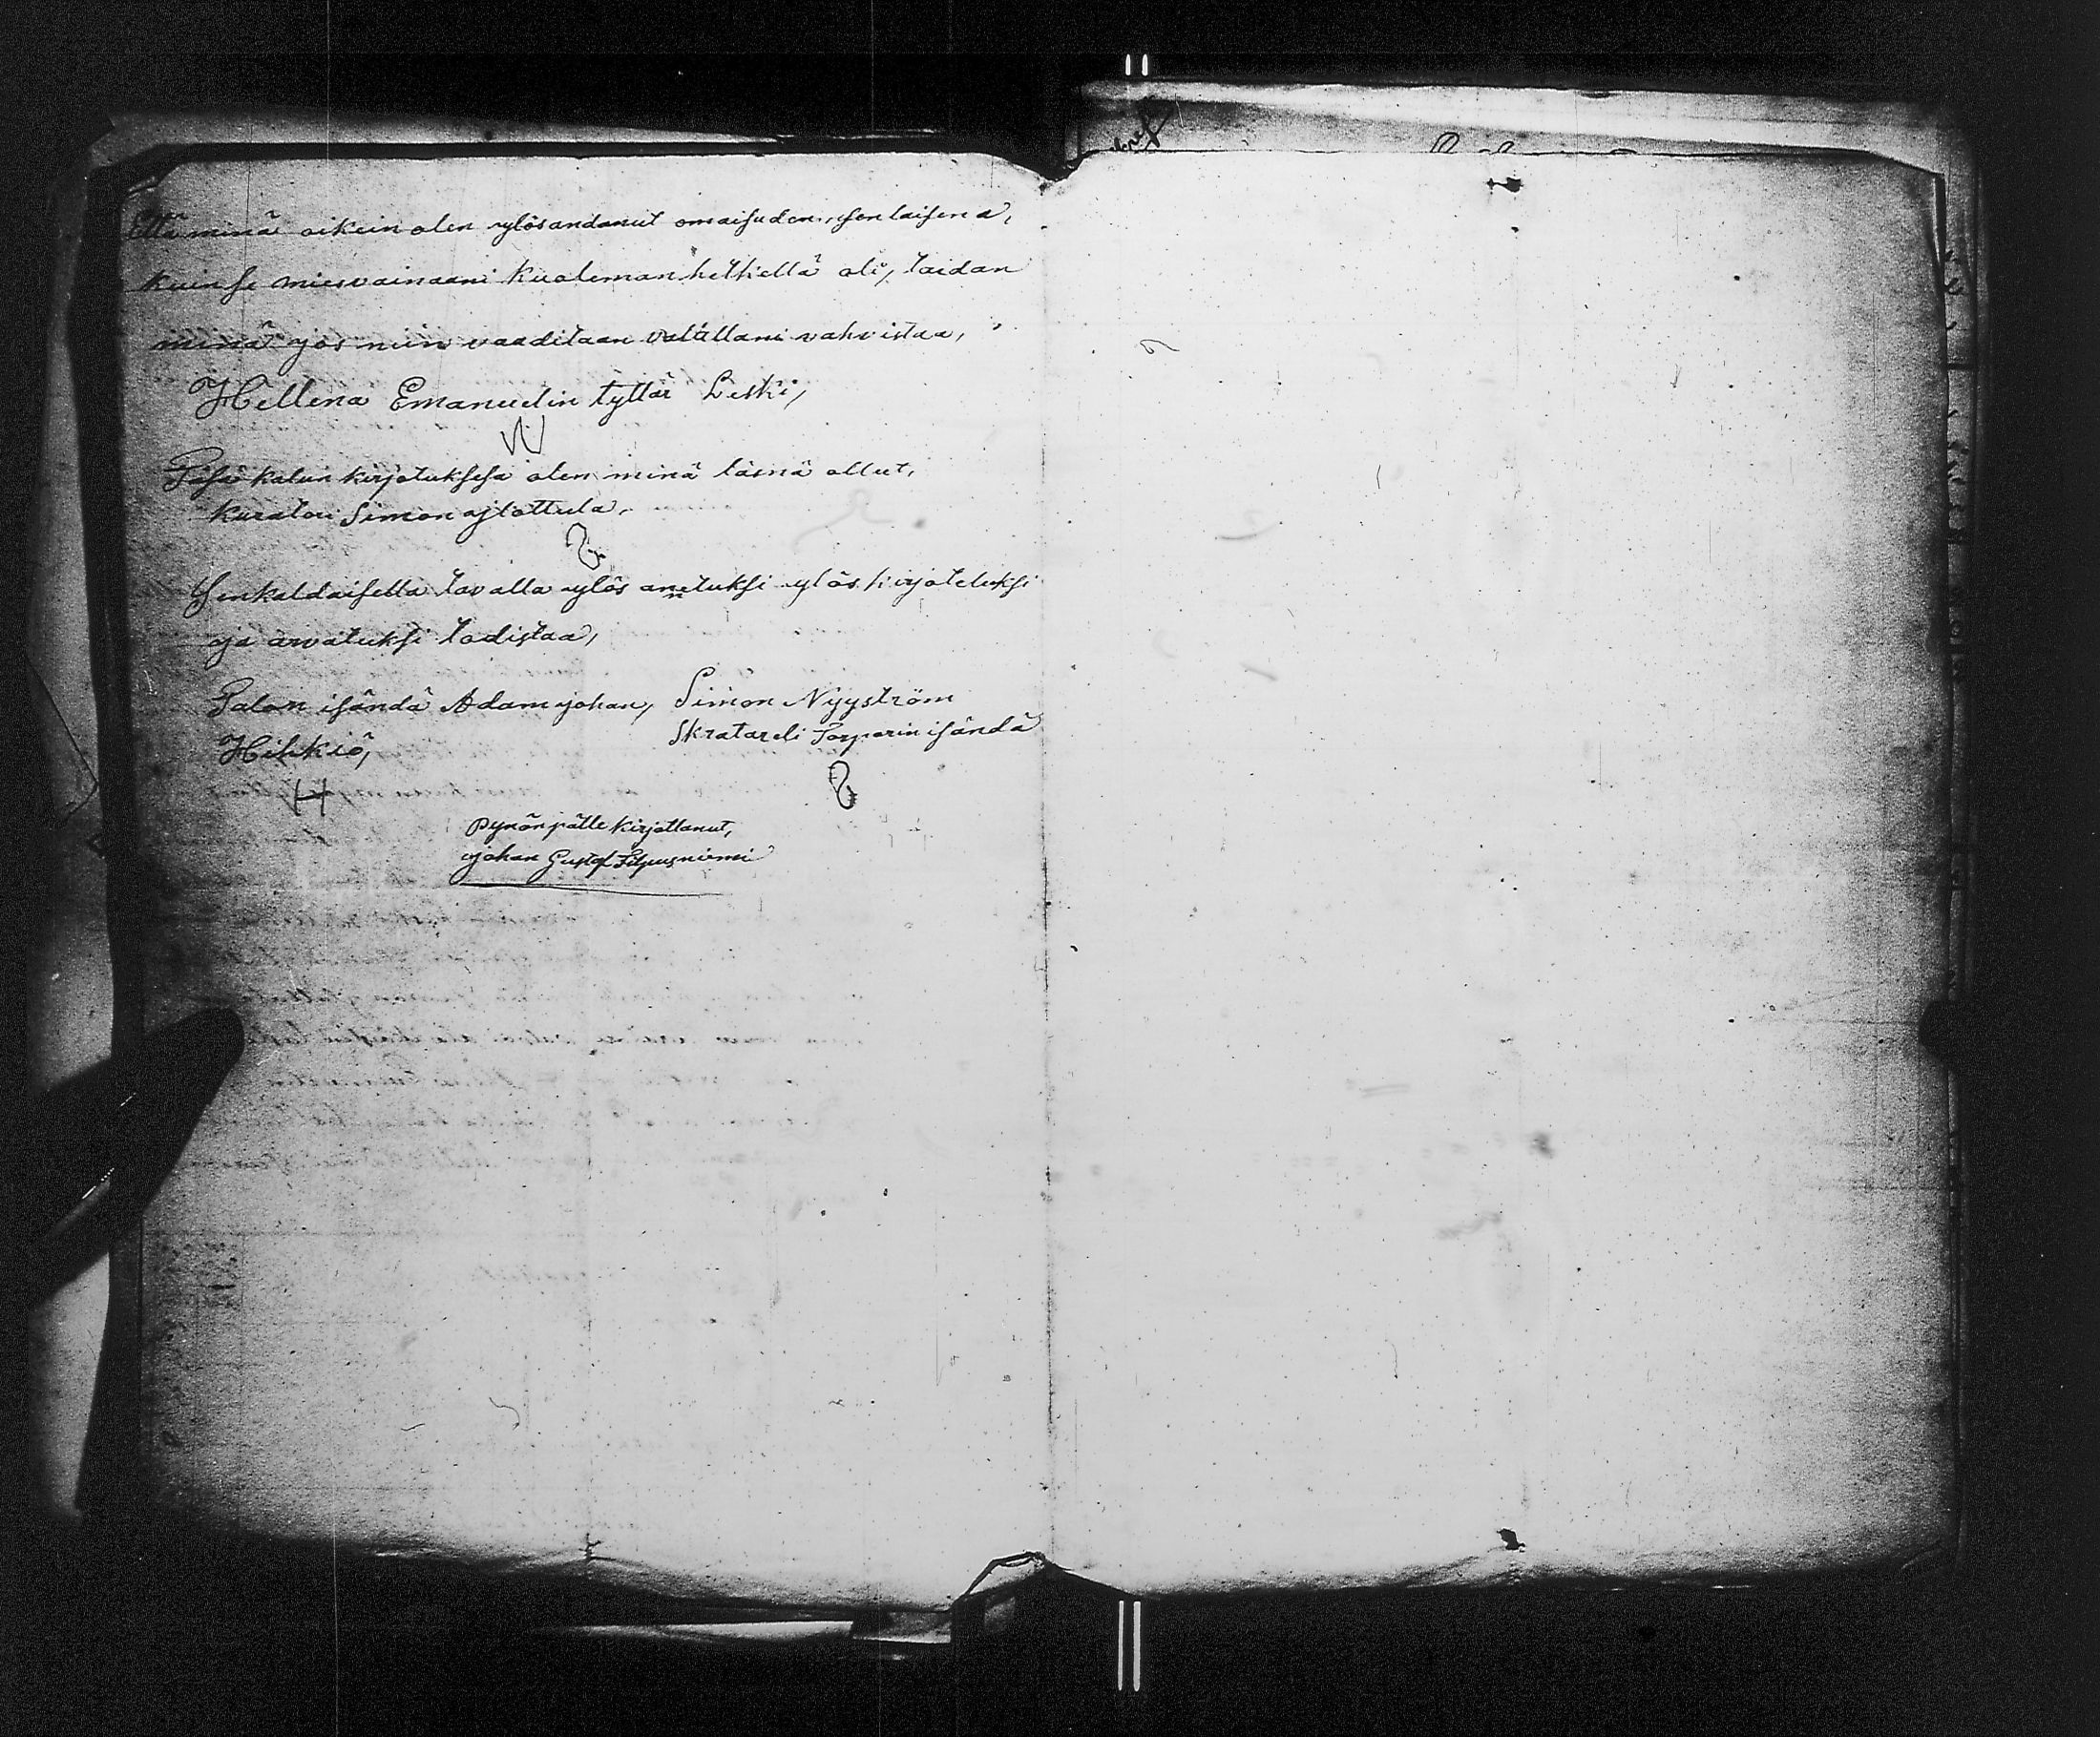 Että minä oikein olen ylösandanut omaisuden, senlaisena,
kuin se miesvainaani kuoleman hetkellä oli, taidan
minä jos niin vaaditaan valallani vahvistaa,
Hellena Emanuelin tyttär Leski,
Täsä kalun kirjotuksesa olen minä läsnä ollut,
kuratori Simon Ylöttula,
Senkaldaisella tavalla ylös annetuksi ylös kirjoteluksi
ja arvatuksi todistaa,
Talon isändä Adam Johan, Simon Nyyström
Hihkiö, Skratareli Torparin isändä
pynön pälle kirjottanut,
Johan Gustaf Filpusniemi